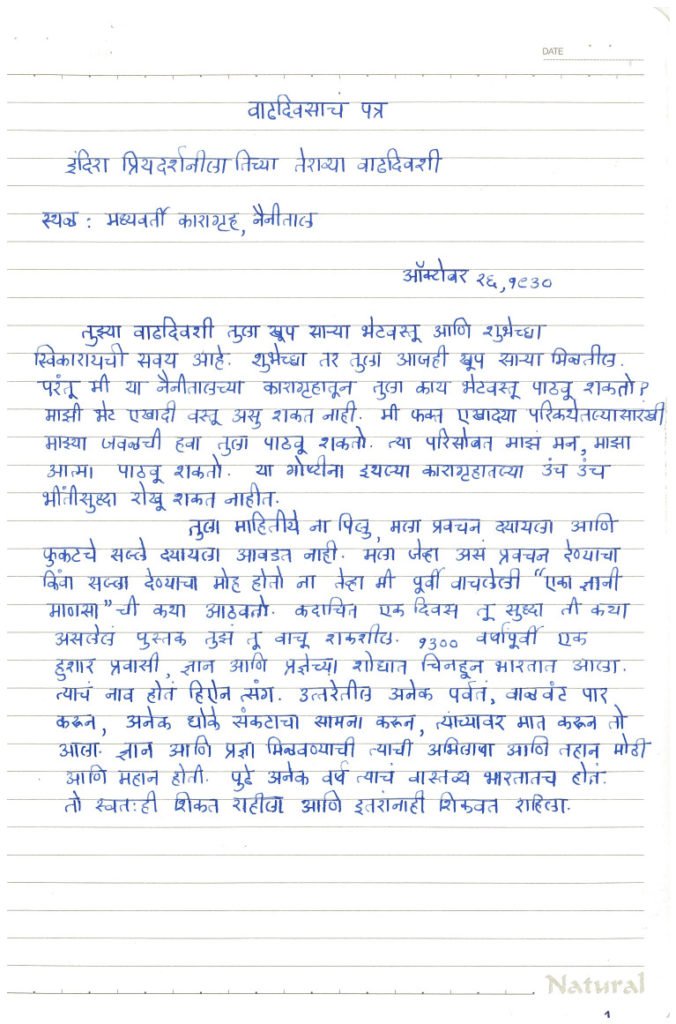 DATE
वाढदिवसाचं पत्र
इंदिरा प्रियदर्शनीला तिच्या तेराव्या वाढदिवशी
स्थळ : मध्यवर्ती कारागृह, नैनीताल
ऑक्टोबर २६, १९३०
तुझ्या वाढदिवशी तुला खूप साऱ्या भेटवस्तू आणि शुभेच्छा
स्विकारायची सवय आहे. शुभेच्छा तर तुला आजही खूप साऱ्या मिळतील.
परंतू मी या नैनीतालच्या कारागृहातून तुला काय भेटवस्तू पाठवू शकतो?
माझी भेट एखादी वस्तू असु शकत नाही. मी फक्त एखाद्या परिकथेतल्यासारखी
माझ्या जवळची हवा तुला पाठवू शकतो. त्या परिसोबत माझं मन, माझा
आत्मा पाठवू शकतो. या गोष्टीना इथल्या कारागृहातल्या उंच उंच
भींतीसुध्दा रोखू शकत नाहीत.
तुला माहितीये ना पिलु, मला प्रवचन द्यायला आणि
फुकटचे सल्ले द्यायला आवडत नाही. मला जेव्हा असं प्रवचन देण्याचा
किंवा सल्ला देण्याचा मोह होतो ना तेव्हा मी पूर्वी वाचलेली "एका ज्ञानी
माणसा" ची कथा आठवतो. कदाचित एक दिवस तू सुध्दा ती कथा
असलेलं पुस्तक तुझं तू वाचू शकशील. १३०० वर्षापूर्वी एक
हुशार प्रवासी, ज्ञान आणि प्रज्ञेच्या शोधात चिनहून भारतात आला.
त्याचं नाव होतं हिऐन त्संग. उत्तरेतील अनेक पर्वतं, वाळवंट पार
करून, अनेक धोके संकटाचा सामना करून, त्यांच्यावर मात करून तो
आला. ज्ञान आणि प्रज्ञा मिळवण्याची त्याची अभिलाषा आणि तहान मोठी
आणि महान होती. पुढे अनेक वर्ष त्याचं वास्तव्य भारतातच होतं.
तो स्वतःही शिकत राहीला आणि इतरांनाही शिकवत राहिला.
Natural
1